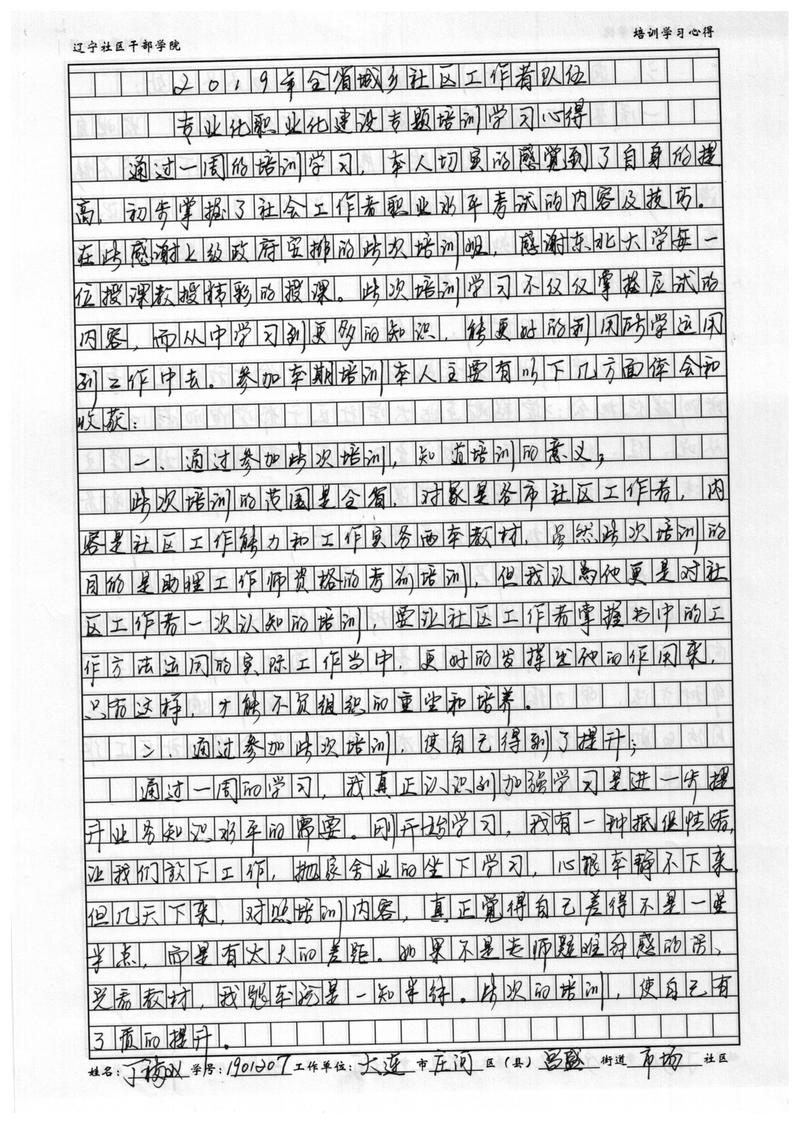 辽宁社区干部学院 培训学习心得
2019年全省城乡社区工作者队伍
专业化职业化建设专题培训学习心得
通过一周的培训学习，本人切实的感觉到了自身的提
高，初步掌握了社会工作者职业水平考试的内容及技巧。
在此感谢上级政府安排的此次培训班，感谢东北大学每一
位授课教授精彩的授课。此次培训学习不仅仅掌握应试的
内容，而从中学习到更多的知识，能更好的利用所学运用
到工作中去。参加本期培训本人主要有以下几方面体会和
收获：
一、通过参加此次培训，知道培训的意义；
此次培训的范围是全省，对象是各市社区工作者，内
容是社区工作能力和工作实务两本教材，虽然此次培训的
目的是助理工作师资格的考前培训，但我认为他更是对社
区工作者一次认知的培训，要让社区工作者掌握书中的工
作方法运用的实际工作当中，更好的发挥出他的作用来，
只有这样，才能不负组织的重生和培养。
二、通过参加此次培训，使自己得到了提升；
通过一周的学习，我真正认识到加强学习是进一步提
升业务知识水平的需要。刚开始学习，我有一种抵促情绪，
让我们放下工作，抛家舍业的坐下学习，心根本静不下来，
但几天下来，对照培训内容，真正觉得自己差得不是一星
半点，而是有太大的差距。如果不是老师疑难解惑的话，
光看教材，我想本该是一知半解。此次的培训，使自己有
了质的提升。
姓名： 学号：1901207 工作单位：大连 市 庄河 区（县） 昌盛 街道 市场 社区